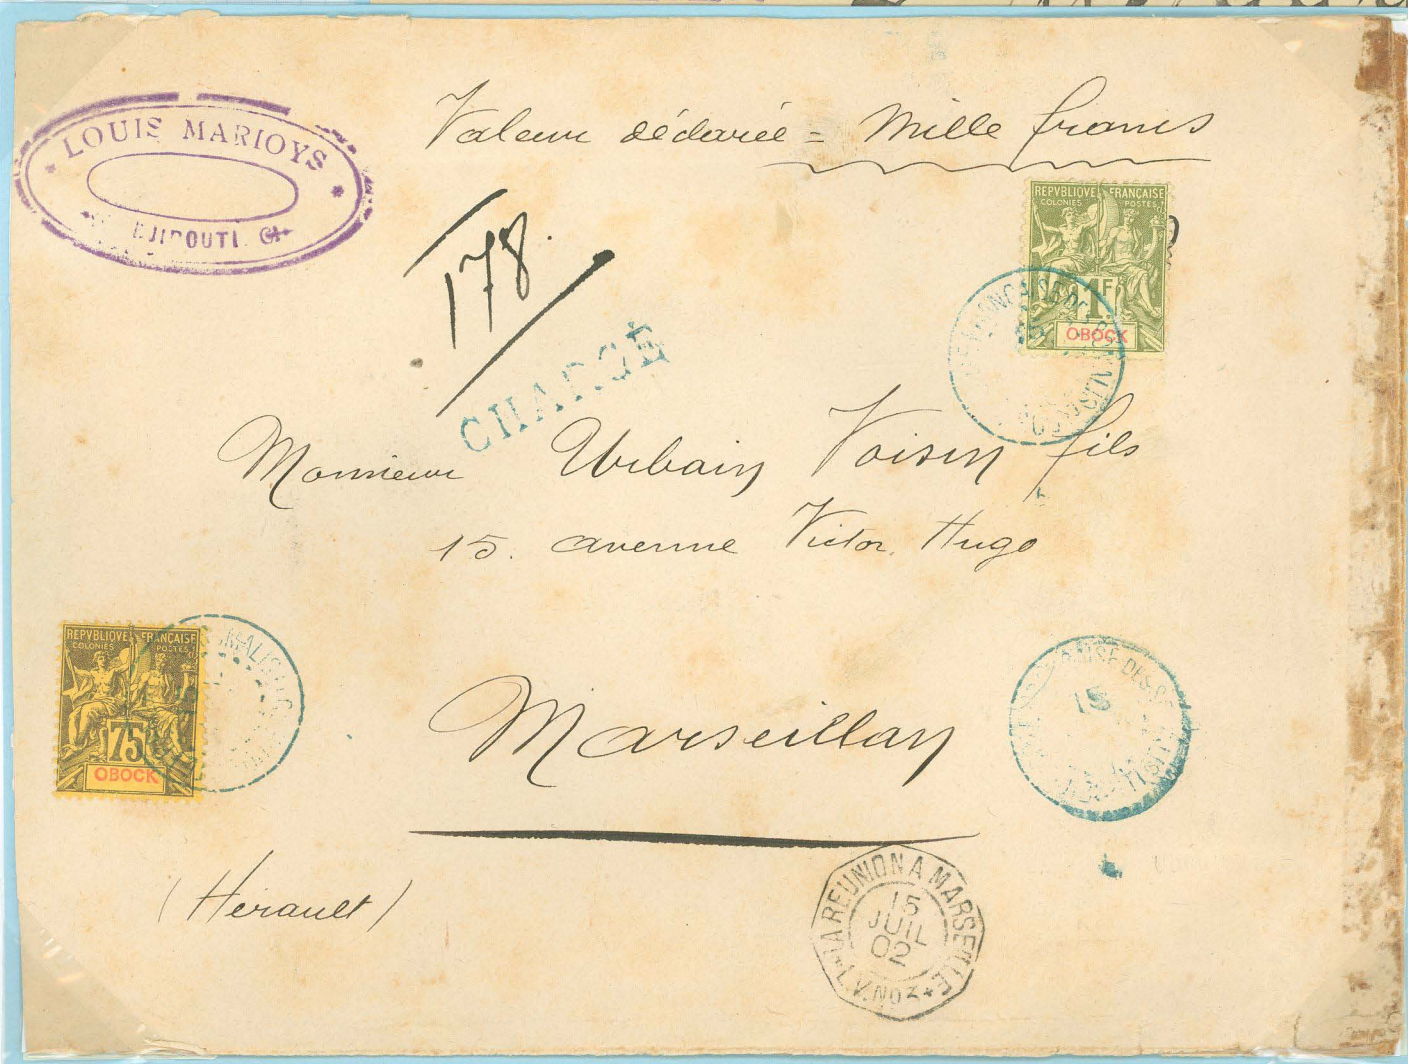 LOUIS MARIOYS
DJIBOUTI
Valeur déclarée = Mille francs
178
CHARGÉ
REPVBLIQVE FRANÇAISE
COLONIES POSTES
1F
OBOCK
Monsieur Urbain Voisin fils
15. avenue Victor Hugo
REPVBLIQVE FRANÇAISE
COLONIES POSTES
75
OBOCK
Marseillan
15
(Hérault)
LA REUNION A MARSEILLE
15
JUIL
02
L.V.No3